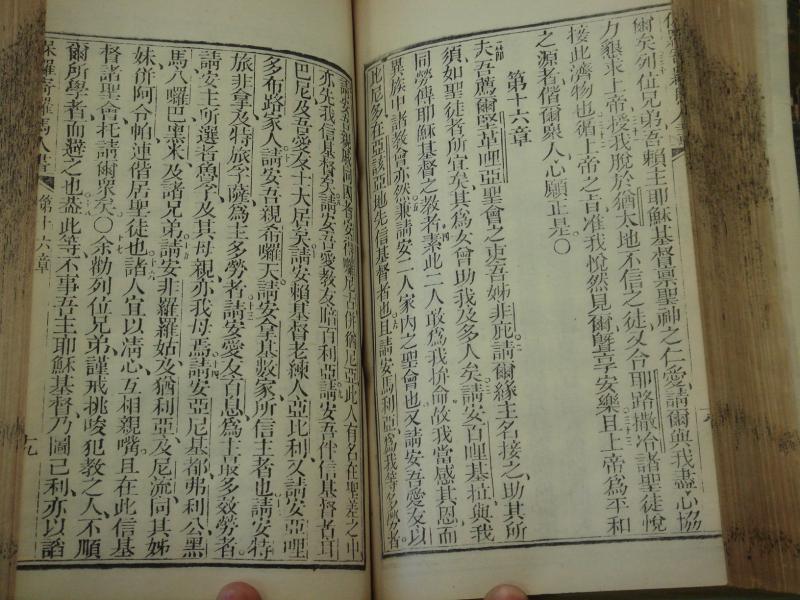 爾矣列位兄弟吾賴主耶穌基督禀聖神之仁愛請爾與我盡心協
力懇求上帝授我脫於猶太地不信之徒又合耶路撒冷諸聖徒悅
接此濟物也循上帝之旨准我悅然見爾曁享安樂且上帝爲平和
之源者偕爾衆人心願正是〇
第十六章
夫吾薦爾堅革哩亞聖會之吾姊非庇請爾緣主名接之助其所
須如聖徒者所宜矣其爲女曾助我及多人矣請安百哩基拉與我
同勞傳耶穌基督之教者素此二人敢爲我拚命故我當感其恩而
異族中諸教會亦然兼請安二人家內之聖會也又請安吾愛友以
比尼多在亞該亞地先信基督者也且請安馬利亞爲我等多勞者
亦先我信基督矣請安吾愛教友暗百利亞請安吾伴信基督者耳
巴尼及吾愛友士大居矣請安賴基督老練人亞比利又請安亞哩
多布路家人請安吾親希囉天請安拿基數家所信主者也請安特
旅非拿及特旅孛薩爲主多勞者請安愛友百息爲主最多效勞者
請安主所選者魯孚及其母親亦我母焉請安亞尼基都弗利公黑
馬八囉巴黑米及諸兄弟請安非羅羅姑及猶利亞及尼流同其姊
妹併阿令帕連偕居聖徒也諸人宜以淸心互相親嘴且在此信基
督諸聖會托請爾衆矣〇余勸列位兄弟謹戒挑唆犯教之人不順
爾所學者而避之也葢此等不事吾主耶穌基督乃圖己利亦以諂
保羅寄羅馬人書 第十六章 十九